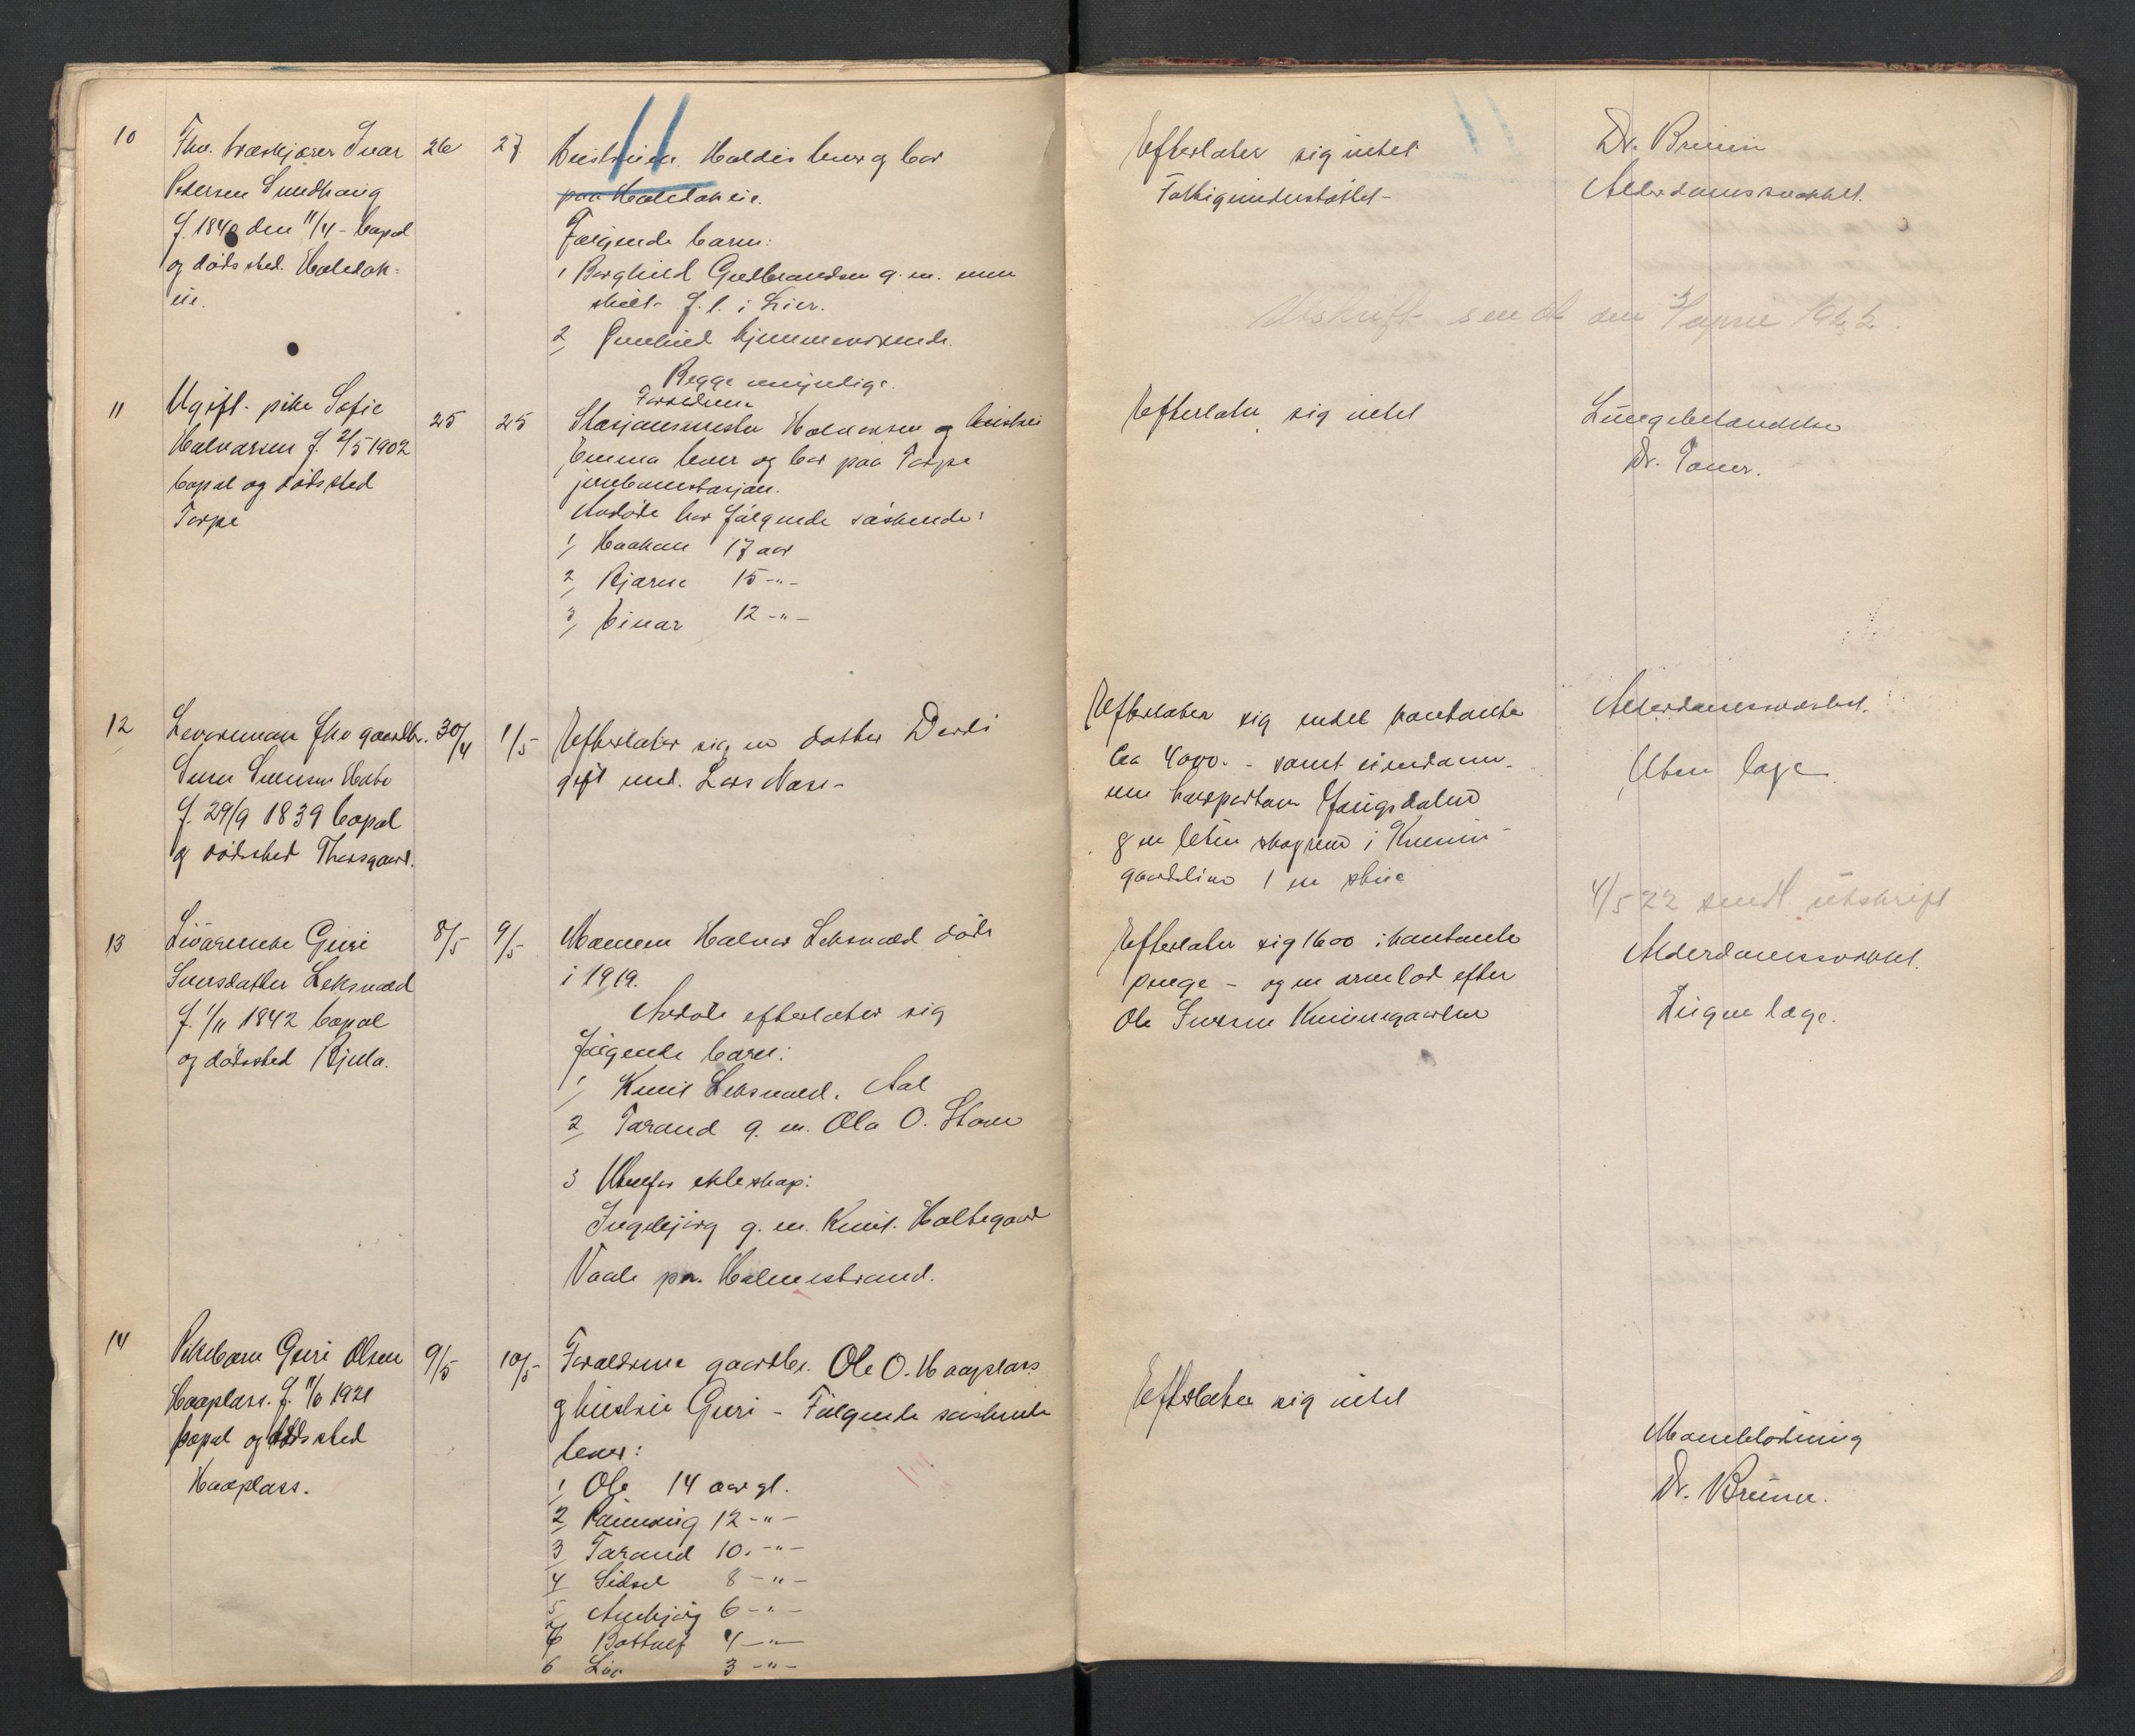 11
10
Fhv. træskjærer Ivar
Pedersen Sundhaug
f. 1840 den 11/4 - bopæl
og dødssted. Holedok=
eie.
26
27
Hustruen. Haldis lever og bor
paa Holedokeie.
Følgende barn:
1 Borghild Gulbrandsen g. m. men
skilt - f. t. i Lier.
2, Gunhild hjemmeværende.
Begge myndige.
Efterlater sig intet
Fattigunderstøttet -
Dr. Bruun
Alderdomssvakhet.
Utskrift sendt den 3/ 1922.
11
Ugift. pike Sofie
Halvorsen f. 2/5 1902
bopæl og dødssted
Torpe
25
25
Forældrene
Stasjonsmester Halvorsen og hustru
Emma lever og bor paa Torpe
jernbanestasjon.
Avdøde har følgende søskende:
1, Haakon 17 aar
2, Bjarne 15 -"-
3, Einar 12 -"-
Efterlater sig intet
Lungebetændelse
Dr. Toner.
12
Levorman fhv gaardbr.
Svein Sveinsen
f. 29/9 1839 bopæl
og dødssted Thorsgaard.
30/4
1/5
Efterlater sig en datter Berli
gift med. Lars Næse -
Efterlater sig endel kontante
ca 4000. - samt eiendom-
men
og en liten skogteig i
1 en stue
Alderdomssvakhet.
Uten læge
4/5 22 sendt utskrift
13
Livørenke Guri
Sversdatter Leksvold
f. 1/11 1842 bopæl
og dødssted Bjella.
8/5
9/5
Mannen Halvor Leksvold døde
i 1919.
Avdøde efterlater sig
følgende barn:
1, Knut Leksvold. Aal
2, Torand g. m. Ola O. Stave
3 Utenfor ekteskap:
Ingebjørg g. m. Knut. Holtegaard
Vaale pr. Holmestrand.
Efterlater sig 1600 i kontante
penge - og en arvelod efter
Ole Sversen
Alderdomssvakhet.
Ingen læge.
14
Pikebarn Guri Olsen
Haaplass. f. 11/6 1921
bopæl og dødssted
Haaplass.
9/5
10/5
Forældrene gaardbr. Ole O. Haaplass
og hustru Guri - Følgende søskende
lever:
1, Ole 14 aar gl.
2, Rønnaug 12 -"-
3, Torand 10. -"-
4, Sidsel 8 -"-
5, Anebjørg 6 -"-
6 Bottolf 4 -"-
6 Liv 3 -"-
Efterlater sig intet
Dr. Bruun.